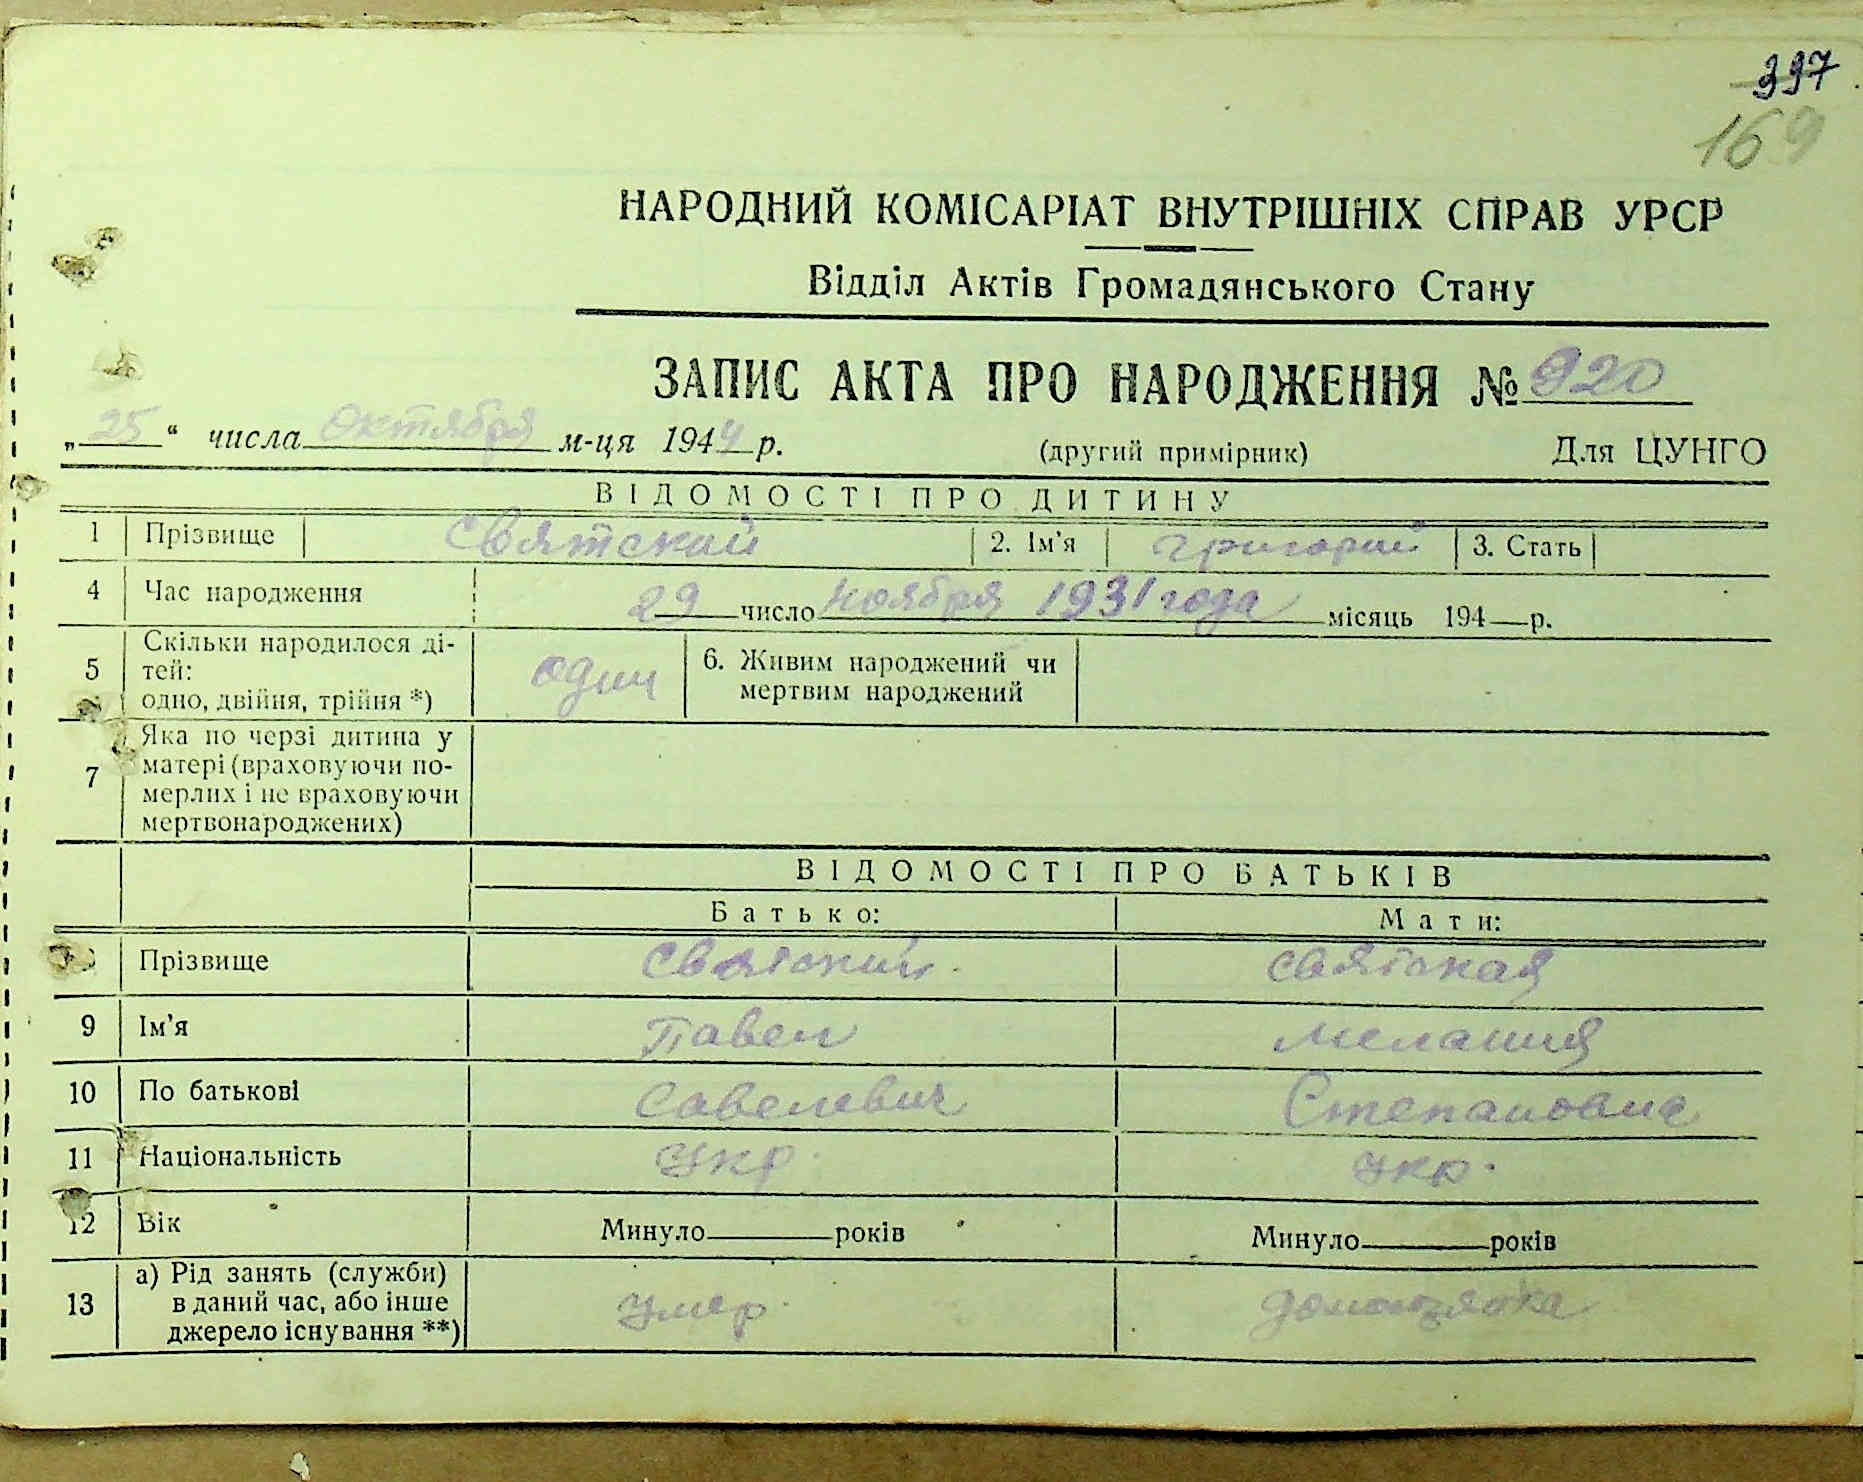 397
169
НАРОДНИЙ КОМІСАРІАТ ВНУТРІШНІХ СПРАВ УРСР
Відділ Актів Громадянського Стану
ЗАПИС АКТА ПРО НАРОДЖЕННЯ № 920
„25“ числа Октября м-ця 1944 р. (другий примірник) Для ЦУНГО
ВІДОМОСТІ ПРО ДИТИНУ
1 Прізвище Святский 2. Ім'я Григорий 3. Стать
4 Час народження 29 число ноября 1931 года місяць 194 — р.
5 Скільки народилося ді-
тей:
одно, двійня, трійня *) один 6. Живим народжений чи
мертвим народжений
7 Яка по черзі дитина у
матері (враховуючи по-
мерлих і не враховуючи
мертвонароджених)
ВІДОМОСТІ ПРО БАТЬКІВ
Батько: Мати:
Прізвище Святский Святская
9 Ім'я Павел Мелания
10 По батькові Савелевич Степановна
11 Національність Укр. Укр.
12 Вік Минуло років Минуло років
13 а) Рід занять (служби)
в даний час, або інше
джерело існування **) умер. домохзяйка